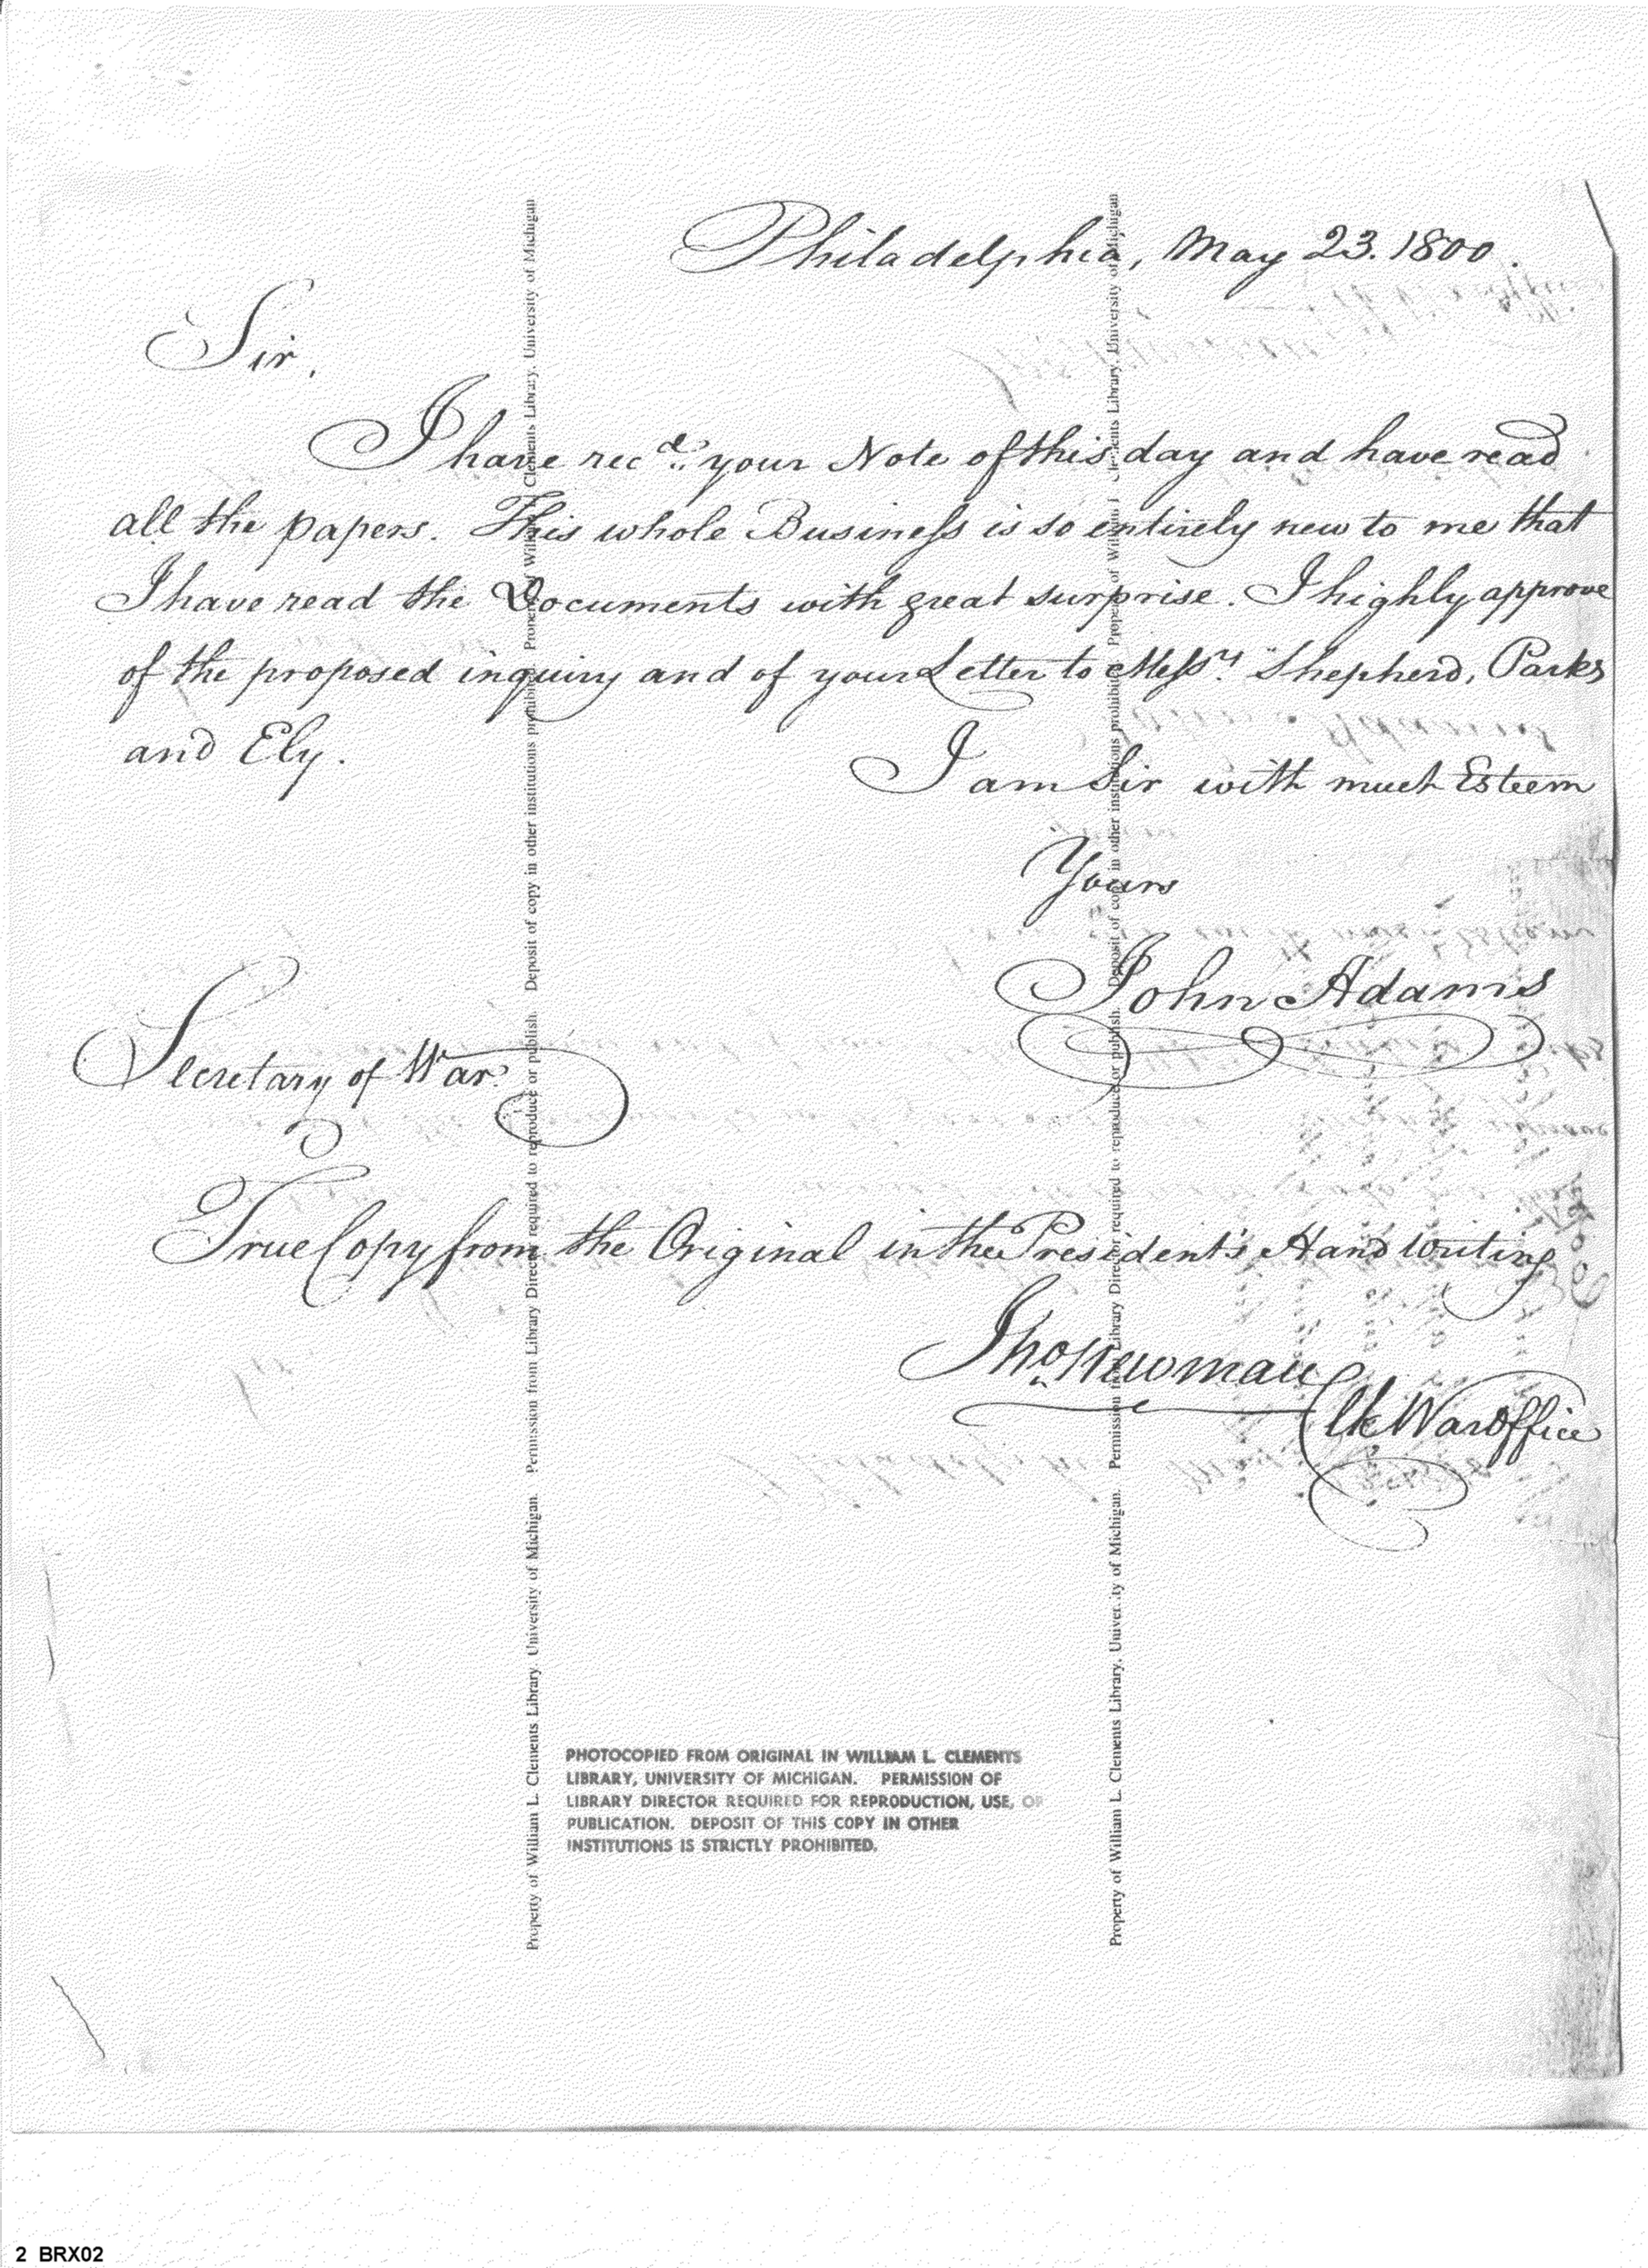 Philadelphia, May 23. 1800.
Sir,
I have recd. your Note of this day and have read
all the papers. This whole Business is so entirely new to me that
I have read the Documents with great surprise. I highly approve
of the proposed inquiry and of your Letter to Messrs. Shepherd, Parks
and Ely.
I am Sir with much Esteem
Yours
John Adams
Secretary of War.
True Copy from the Original in the President's Hand Writing
Tho Newman
Clk War Office
Property of William L. Clements Library, University of Michigan. Permission from Library Director required to reproduce or publish. Deposit of copy in other institutions prohibited. Property of William L. Clements Library, University of Michigan
Property of William L. Clements Library, University of Michigan. Permission from Library Director required to reproduce or publish. Deposit of copy in other institutions prohibited. Property of William L. Clements Library, University of Michigan
PHOTOCOPIED FROM ORIGINAL IN WILLIAM L. CLEMENTS
LIBRARY, UNIVERSITY OF MICHIGAN. PERMISSION OF
LIBRARY DIRECTOR REQUIRED FOR REPRODUCTION, USE, OR
PUBLICATION. DEPOSIT OF THIS COPY IN OTHER
INSTITUTIONS IS STRICTLY PROHIBITED.
2 BRX02